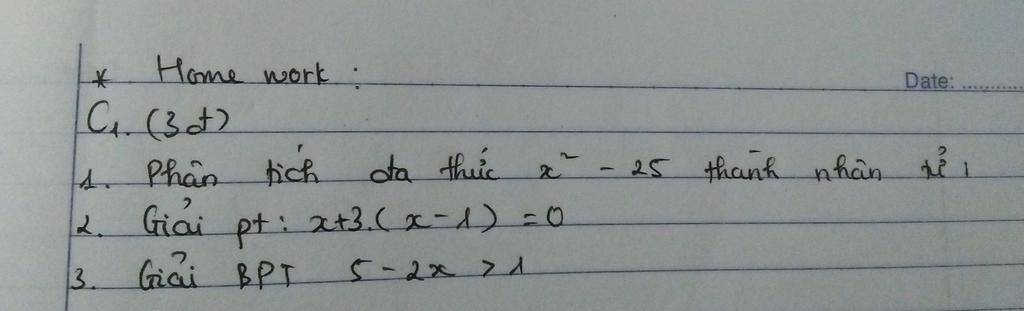 * Home work :
Date: ............
C1. (3đ)
1. Phân tích đa thức x² - 25 thành nhân tử
2. Giải pt : x+3.(x-1) = 0
3. Giải BPT 5 - 2x > 1